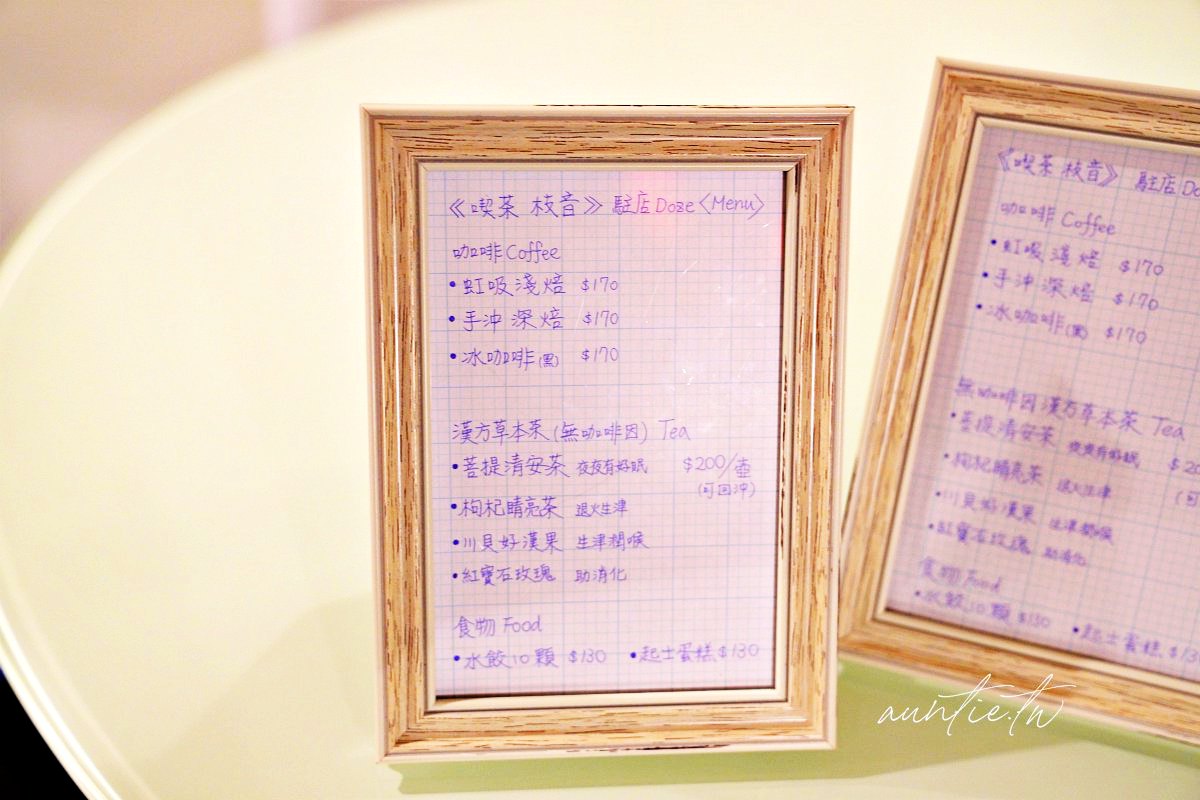 《喫茶 枝音》 駐店 Doze〈Menu〉
咖啡 Coffee
•虹吸淺焙 $170
•手沖深焙 $170
•冰咖啡(黑) $170
漢方草本茶(無咖啡因) Tea
•菩提清安茶 夜夜有好眠 $200/壺
(可回沖)
•枸杞睛亮茶 退火生津
•川貝好漢果 生津潤喉
•紅寶石玫瑰 助消化
食物 Food
•水餃10顆 $130 •起士蛋糕 $130
《喫茶 枝音》 駐店 Do
咖啡 Coffee
•虹吸淺焙 $170
•手沖深焙 $170
•冰咖啡(黑) $170
無咖啡因漢方草本茶 Tea
•菩提清安茶 夜夜有好眠 $20
(可
•枸杞睛亮茶 退火生津
•川貝好漢果 生津潤喉
•紅寶石玫瑰 助消化
食物 Food
•水餃10顆 $130 •起士蛋糕 $13
auntie.tw